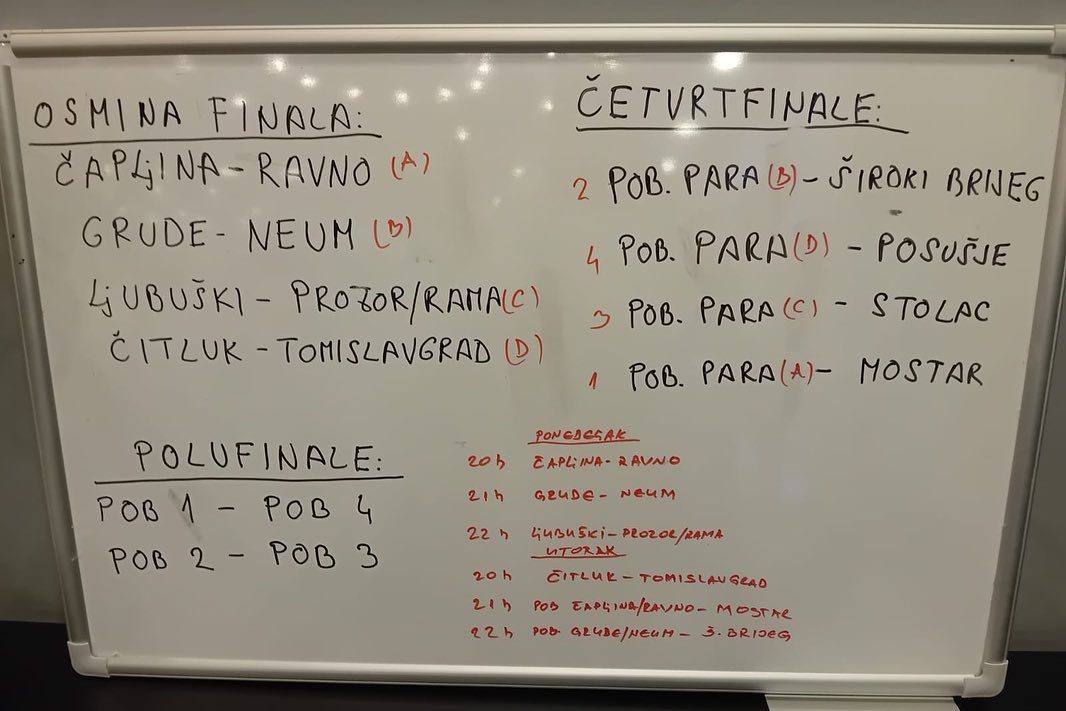 OSMINA FINALA:
ČAPLjINA - RAVNO (A)
GRUDE - NEUM (B)
LjUBUŠKI - PROZOR/RAMA (C)
ČITLUK - TOMISLAVGRAD (D)
ČETVRTFINALE:
2 POB. PARA (B) - ŠIROKI BRIJEG
4 POB. PARA (D) - POSUŠJE
3 POB. PARA (C) - STOLAC
1 POB. PARA (A) - MOSTAR
POLUFINALE:
POB 1 - POB 4
POB 2 - POB 3
PONEDEJAK
20h ČAPLjINA - RAVNO
21h GRUDE - NEUM
22h LjUBUŠKI - PROZOR/RAMA
UTORAK
20h ČITLUK - TOMISLAVGRAD
21h POB ČAPLjINA/RAVNO - MOSTAR
22h POB GRUDE/NEUM - Š. BRIJEG